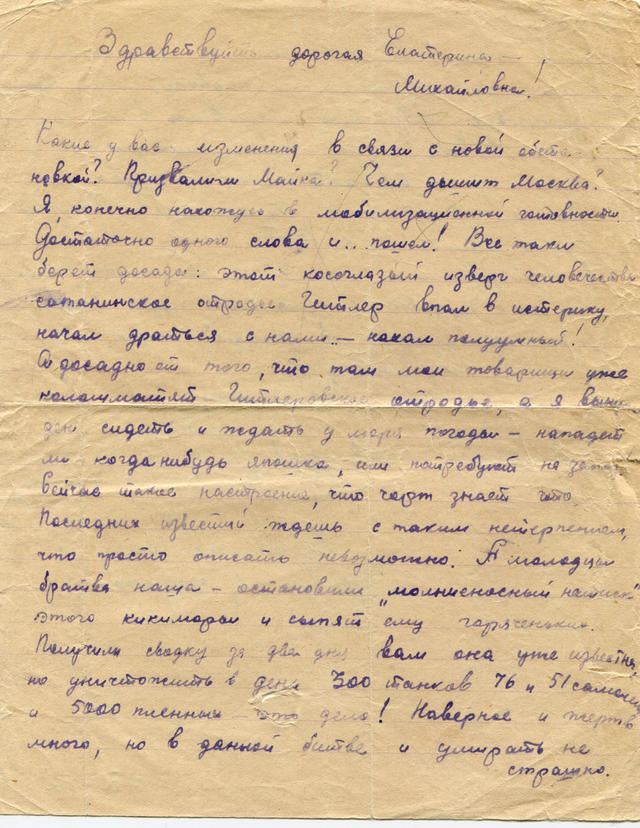 Здравствуйте дорогая Екатерина
Михайловна!
Какие у вас изменения в связи с новой обста-
новкой? Призвали ли Майка? Чем дышит Москва?
Я, конечно нахожусь в мобилизационной готовности.
Достаточно одного слова и.. пошел! Все таки
берет досада: этот косоглазый изверг человечества
сатанинское отродье Гитлер впал в истерику,
начал драться с нами – нахал полуумный!
А досадно от того, что там мои товарищи уже
колошматят Гитлеровское отродье, а я вынуж
ден сидеть и ждать у моря погоды – нападет
ли когда нибудь япошка, или потребуют на запад
сейчас такое настроение, что чорт знает что.
Последних известий ждешь с таким нетерпением,
что просто описать невозможно. А молодцы
братва наша – остановили "молниеносный натиск"
этого кикиморы и сыпят ему горяченьких.
Получили сводку за два дня вам она уже известна,
но уничтожить в день 300 танков 76 и 51 самолет
и 5000 пленных – это дело! Наверное и жертв
много, но в данной битве и умирать не
страшно.